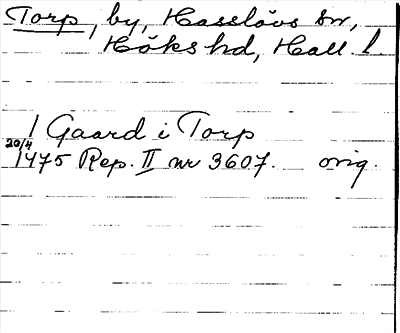 Torp, by, Hasslövs sn,
Höks hd, Hall. l.
1 Gaard i Torp
20/4
1475 Rep. II nr 3607. orig.